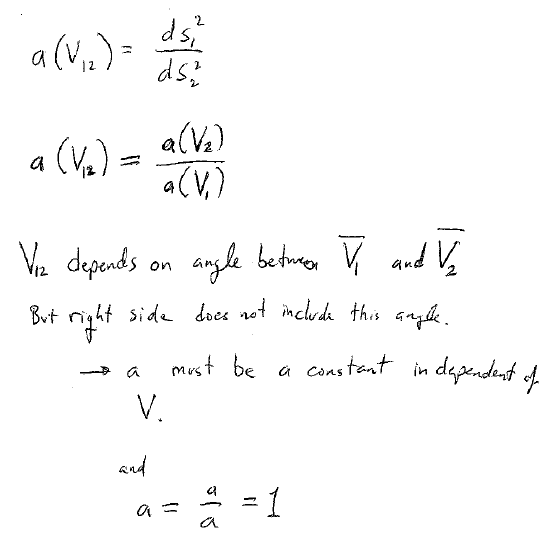 a(V₁₂) = ds₁² / ds₂²
a(V₁₂) = a(V₂) / a(V₁)
V₁₂ depends on angle between V̅₁ and V̅₂
But right side does not include this angle.
→ a must be a constant independent of
V.
and
a = a / a = 1